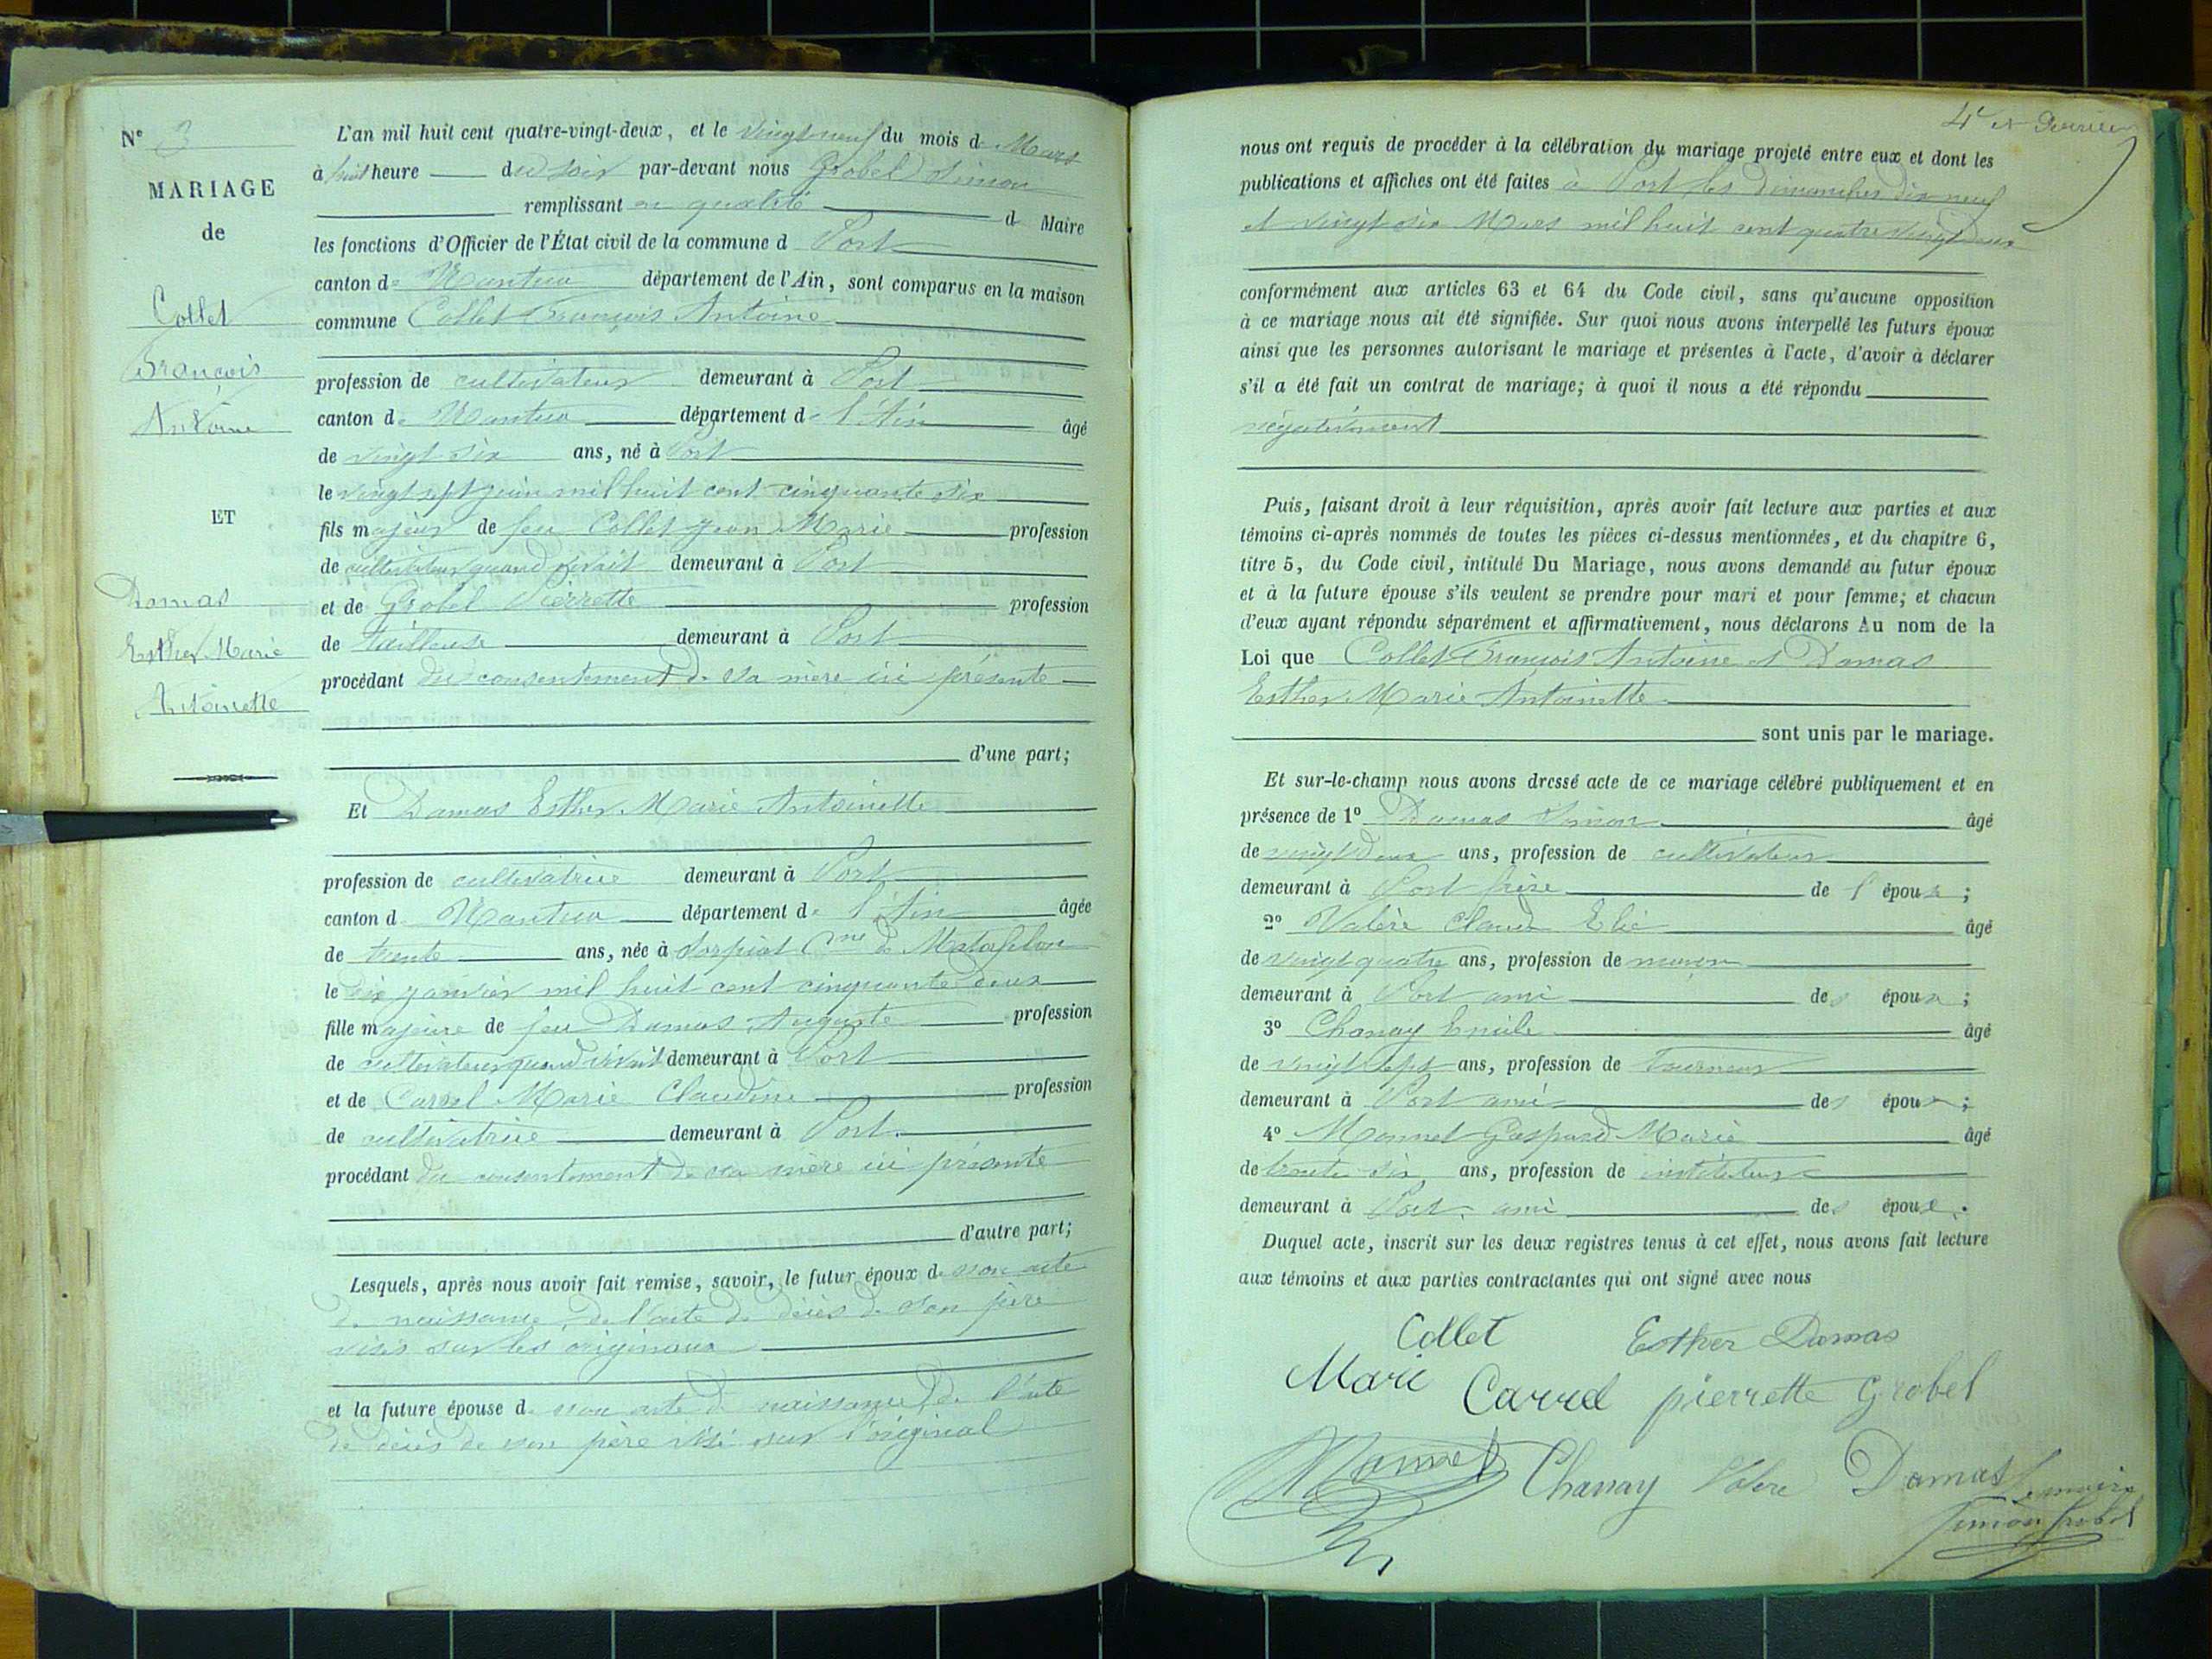 N° 3
MARIAGE
de
Collet
François
Antoine
ET
Damas
Esther Marie
Antoinette
L'an mil huit cent quatre-vingt-deux, et le vingt neuf du mois de Mars
à huit heure du soir par-devant nous Grobel Simon
remplissant en qualité d Maire
les fonctions d'Officier de l'État civil de la commune d Port
canton de Nantua département de l'Ain, sont comparus en la maison
commune Collet François Antoine
profession de cultivateur demeurant à Port
canton de Nantua département de l'Ain âgé
de vingt six ans, né à Port
le vingt sept juin mil huit cent cinquante six
fils majeur de feu Collet Jean Marie profession
de cultivateur quand vivait demeurant à Port
et de Grobel Pierrette profession
de tailleuse demeurant à Port
procédant du consentement de sa mère ici présente
d'une part;
Et Damas Esther Marie Antoinette
profession de cultivatrice demeurant à Port
canton d Nantua département de l'Ain âgée
de trente ans, née à Corpiat Cne de Matafelon
le six janvier mil huit cent cinquante deux
fille majeure de feu Damas Auguste profession
de cultivateur quand vivait demeurant à Port
et de Carrel Marie Claudine profession
de cultivatrice demeurant à Port.
procédant du consentement de sa mère ici présente
d'autre part;
Lesquels, après nous avoir fait remise, savoir, le futur époux de son acte
de naissance, de l'acte de décès de son père
visés sur les originaux
et la future épouse de son acte de naissance, de l'acte
de décès de son père visé sur l'original
4e et dernier
nous ont requis de procéder à la célébration du mariage projeté entre eux et dont les
publications et affiches ont été faites à Port les dimanches dix neuf
et vingt six Mars mil huit cent quatre vingt deux
conformément aux articles 63 et 64 du Code civil, sans qu'aucune opposition
à ce mariage nous ait été signifiée. Sur quoi nous avons interpellé les futurs époux
ainsi que les personnes autorisant le mariage et présentes à l'acte, d'avoir à déclarer
s'il a été fait un contrat de mariage; à quoi il nous a été répondu
négativement
Puis, faisant droit à leur réquisition, après avoir fait lecture aux parties et aux
témoins ci-après nommés de toutes les pièces ci-dessus mentionnées, et du chapitre 6,
titre 5, du Code civil, intitulé Du Mariage, nous avons demandé au futur époux
et à la future épouse s'ils veulent se prendre pour mari et pour femme; et chacun
d'eux ayant répondu séparément et affirmativement, nous déclarons Au nom de la
Loi que Collet François Antoine et Damas
Esther Marie Antoinette
sont unis par le mariage.
Et sur-le-champ nous avons dressé acte de ce mariage célébré publiquement et en
présence de 1° Damas Simon âgé
de vingt deux ans, profession de cultivateur
demeurant à Port frère de l'épouse;
2° Valère Claude Elie âgé
de vingt quatre ans, profession de
demeurant à Port ami des époux;
3° Chanay Emile âgé
de vingt sept ans, profession de tourneur
demeurant à Port ami des époux;
4° Monnet Gaspard Marie âgé
de trente six ans, profession de instituteur
demeurant à Port. ami des époux.
Duquel acte, inscrit sur les deux registres tenus à cet effet, nous avons fait lecture
aux témoins et aux parties contractantes qui ont signé avec nous
Collet Esther Damas
Marie Carrel pierrette Grobel
Monnet Chanay Valere Damas Le maire
Simon Grobel